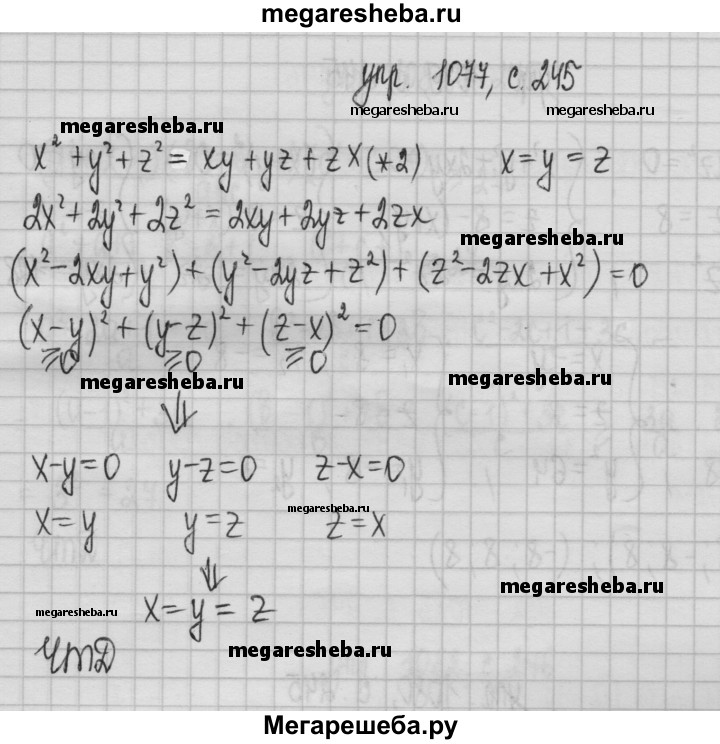 megaresheba.ru
упр. 1077, с. 245
megaresheba.ru megaresheba.ru
megaresheba.ru
x² + y² + z² = xy + yz + zx (*2) x = y = z
2x² + 2y² + 2z² = 2xy + 2yz + 2zx
megaresheba.ru
(x² - 2xy + y²) + (y² - 2yz + z²) + (z² - 2zx + x²) = 0
(x - y)² + (y - z)² + (z - x)² = 0
≥0 ≥0 ≥0
megaresheba.ru megaresheba.ru
⇓
x - y = 0 y - z = 0 z - x = 0
megaresheba.ru
x = y y = z z = x
⇓
megaresheba.ru
megaresheba.ru x = y = z
чтд megaresheba.ru
Мегарешеба.ру